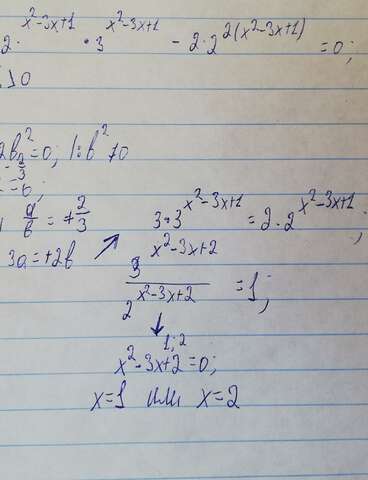 2· x²-3x+1 · 3 x²-3x+1 - 2·2 2(x²-3x+1) =0;
10
2b²=0; |:b²≠0
-6;
a/b = +2/3
3a=+2b
3·3^x²-3x+1 = 2·2^x²-3x+1;
3^x²-3x+2 / 2^x²-3x+2 =1;
1; 2
x²-3x+2=0;
x=1 или x=2